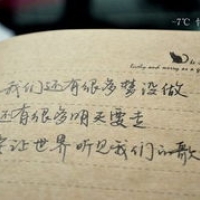 -7℃
我们还有很多梦没做
还有很多明天要走
让世界听见我们的歌